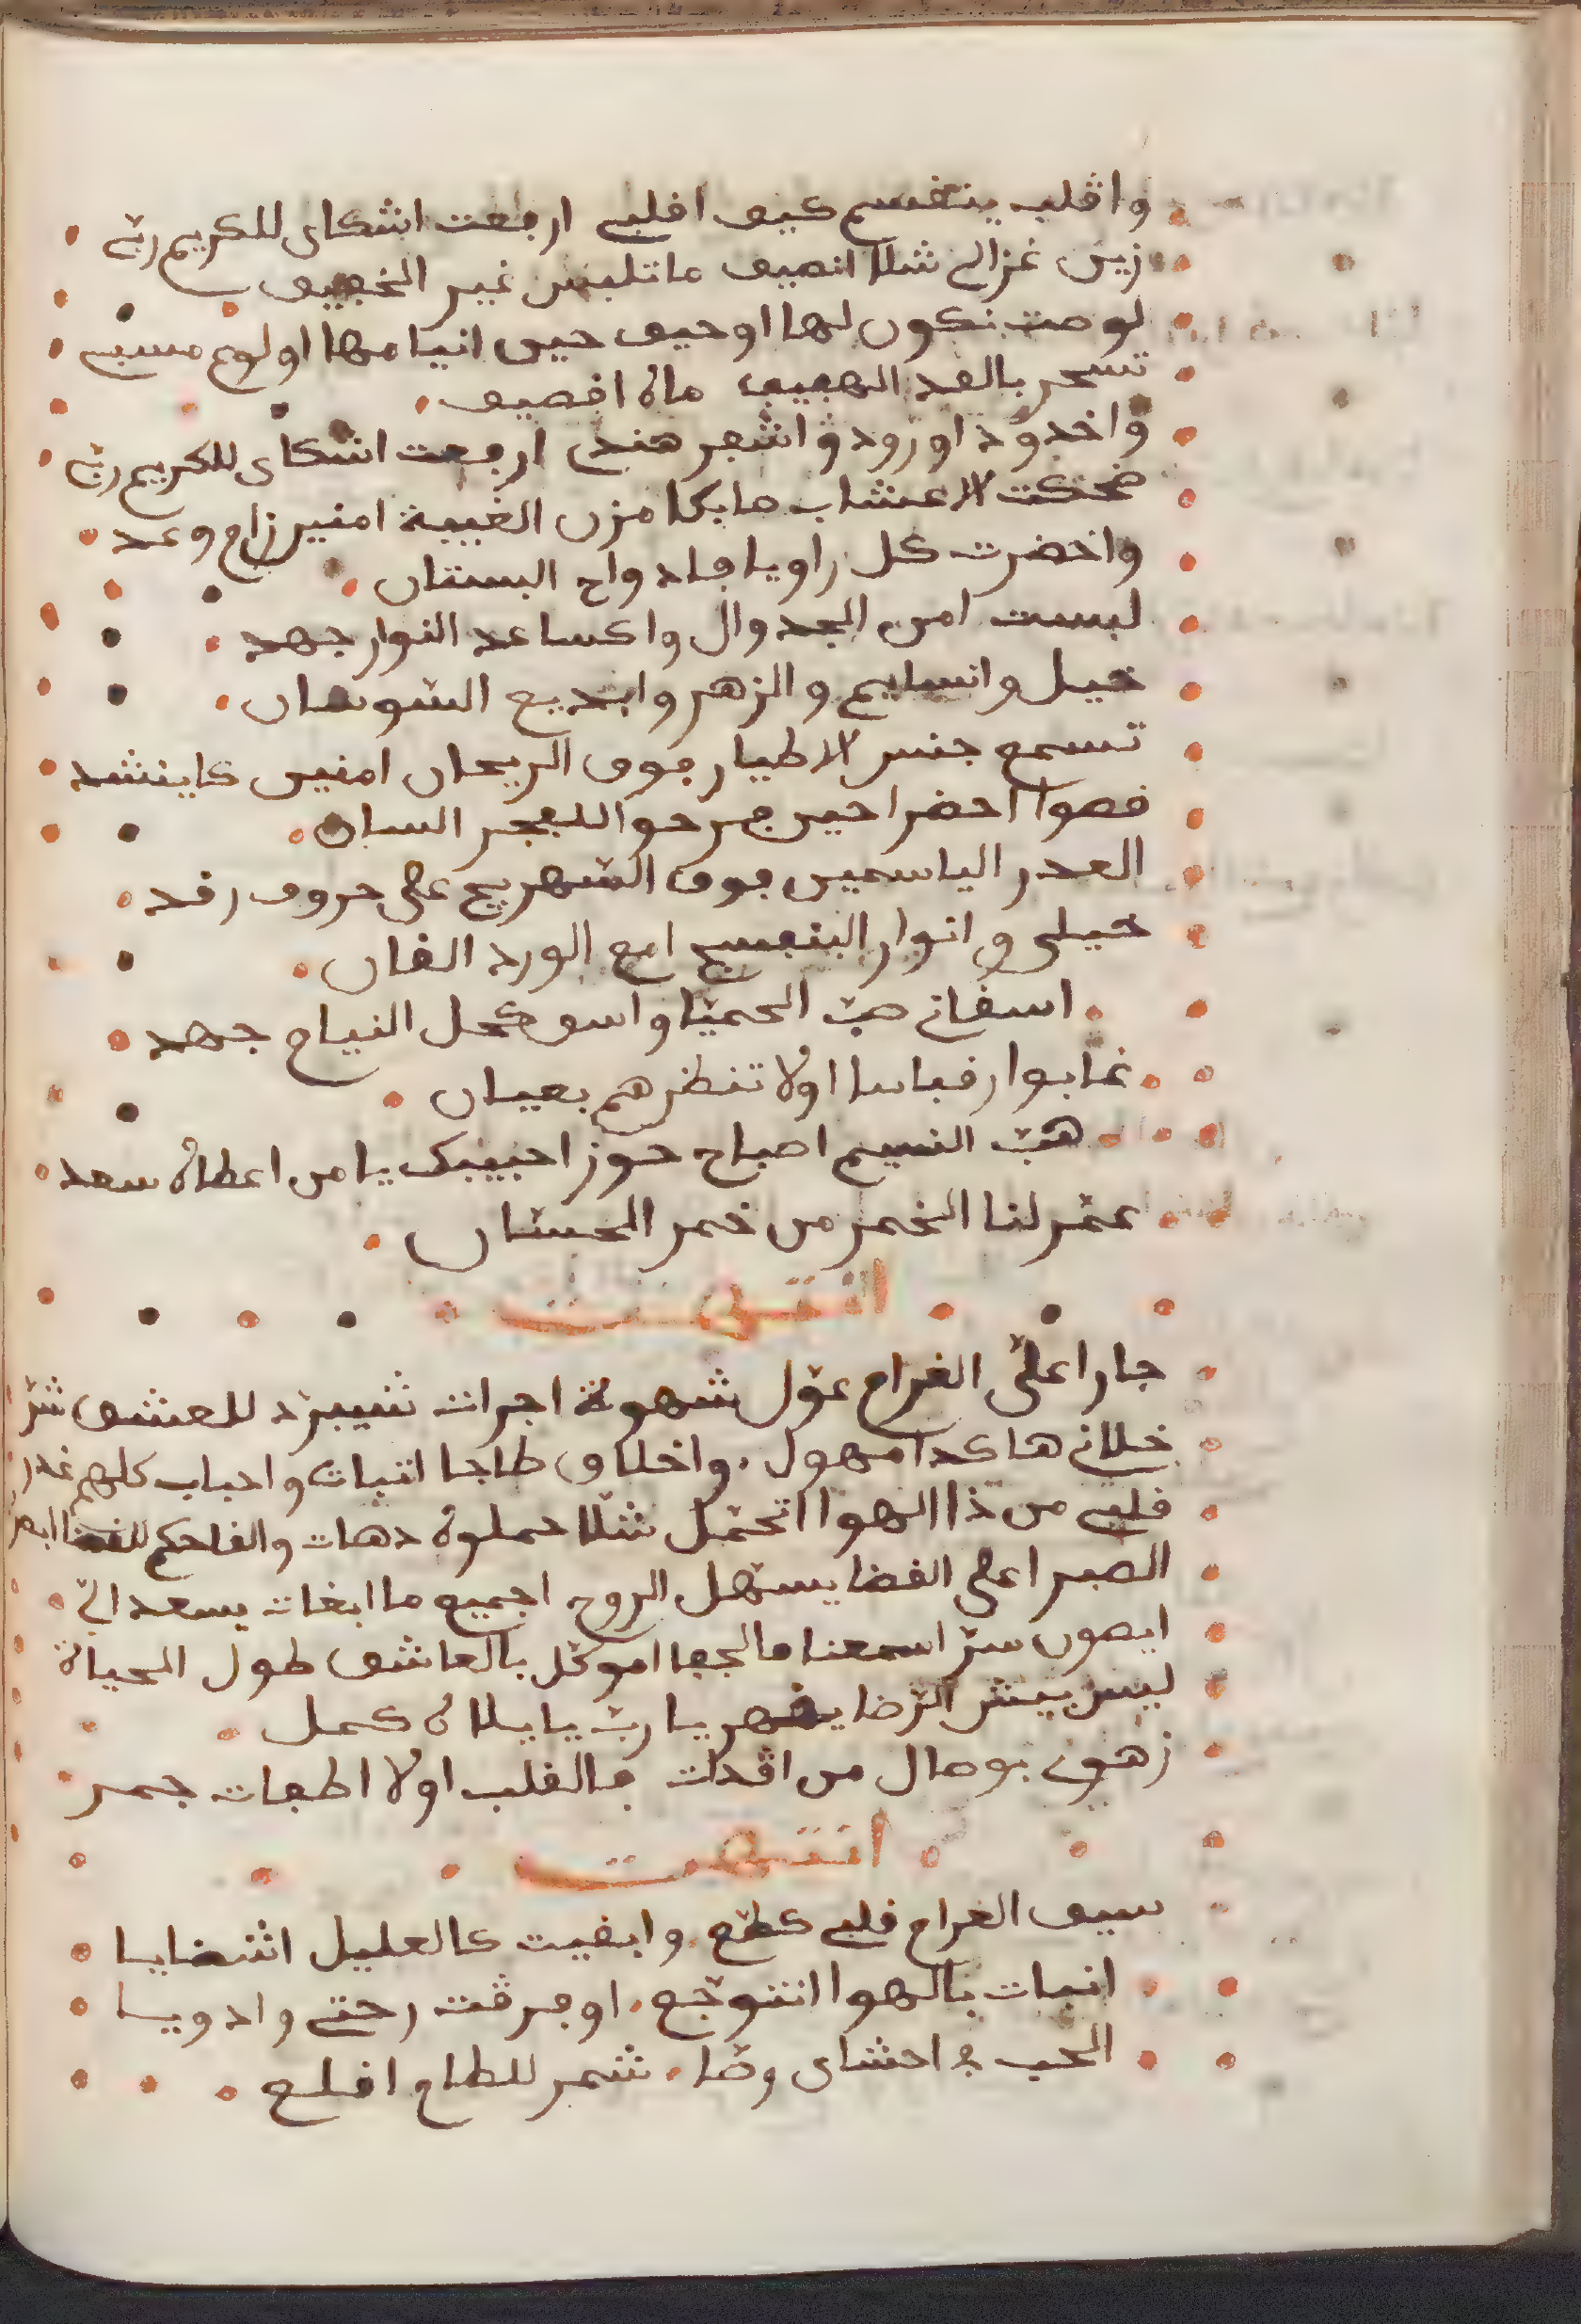 واقلب ينقسم كيف اقلبي ارفعت اشكاى للكريم ربّي
زين غزالي شلا انصيف ما تلبس غير الخفيف
لو صبت نكون لها اوحيف حين انيامها اولوع مسبي
تسحر بالقد الهيف ماه اقصيف
واخدود اورود واشفر هندي ارفعت اشكاى للكريم ربّي
ضحكت الاعشاب ما بكا مزن الغيبة امنير زاح وعد
واخضرت كل راويا فادواح البستان
لبست امن الجدوال واكساعد النوار جهد
خيل وانسايم والزهر وابديع السوسان
تسمع جنس الاطيار فوق الريحان امنين كاينشد
قصوا احضر احين فرحوا للفجر البان
الغدر الياسمين فوق الصهريج على حروف رقد
خيلي وانوار البنفسج امع الورد الفان
اسقاني حبّ الحميّا واسوكحل النياح جهد
غابوا رقباسا اولا تنظرهم بعيان
هبّ النسيم اصباح حوز احبيبك يا من اعطاه سعد
عمّر لنا الخمر من خمر الحسّان
انتهت
جارا عليّ الغرام عوّل شهوة اجرات شيبرد للعشق شرّ
خلاني هاكدا مهول واخلاق طاجا اتبات واحباب كلهم غدر
قلبي من ذا الهوا اتحمّل شلا حملوه دهات والقاحكم للقضا ابصر
الصبر اعلى القضا يسهّل الروح اجميع ما ابغات يسعد الي
ايصون سرّ اسمعنا مالجفا اموكّل بالعاشق طول الحياة
ليس بيش الرّضا يفهر يا ربّ يا يلاه كمل
زهوي بوصال من اقدات فالقلب اولا اطفات جمر
انتهت
سيف الغرام قلبي كطّع وابقيت كالعليل اشضايا
انبات بالهوا انتوجّع اوفرقت رحتي وادويا
الحب في احشاى وضا شمر للطاع اقلع